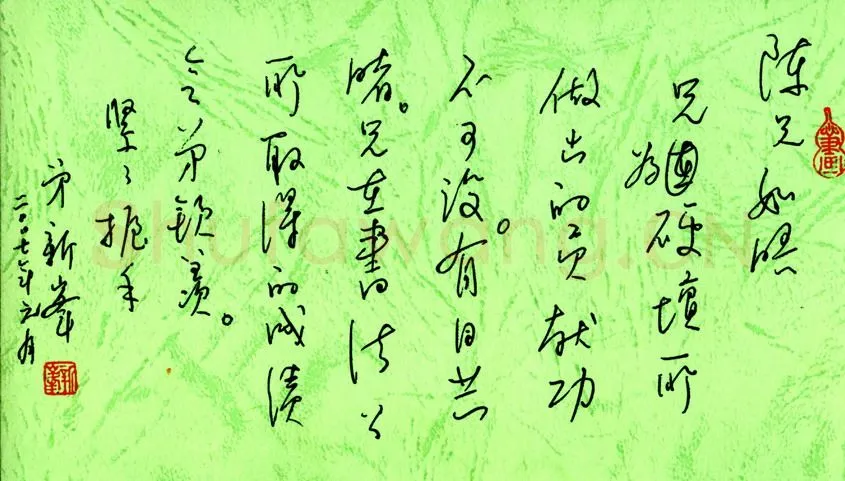 陈兄如晤
兄为硬壇所
做出的贡献功
不可没有目共
睹。兄在書法上
所取得的成绩
令弟钦羡。
紧々握手
弟新峯
二〇〇七年元月
Shufawang.CN